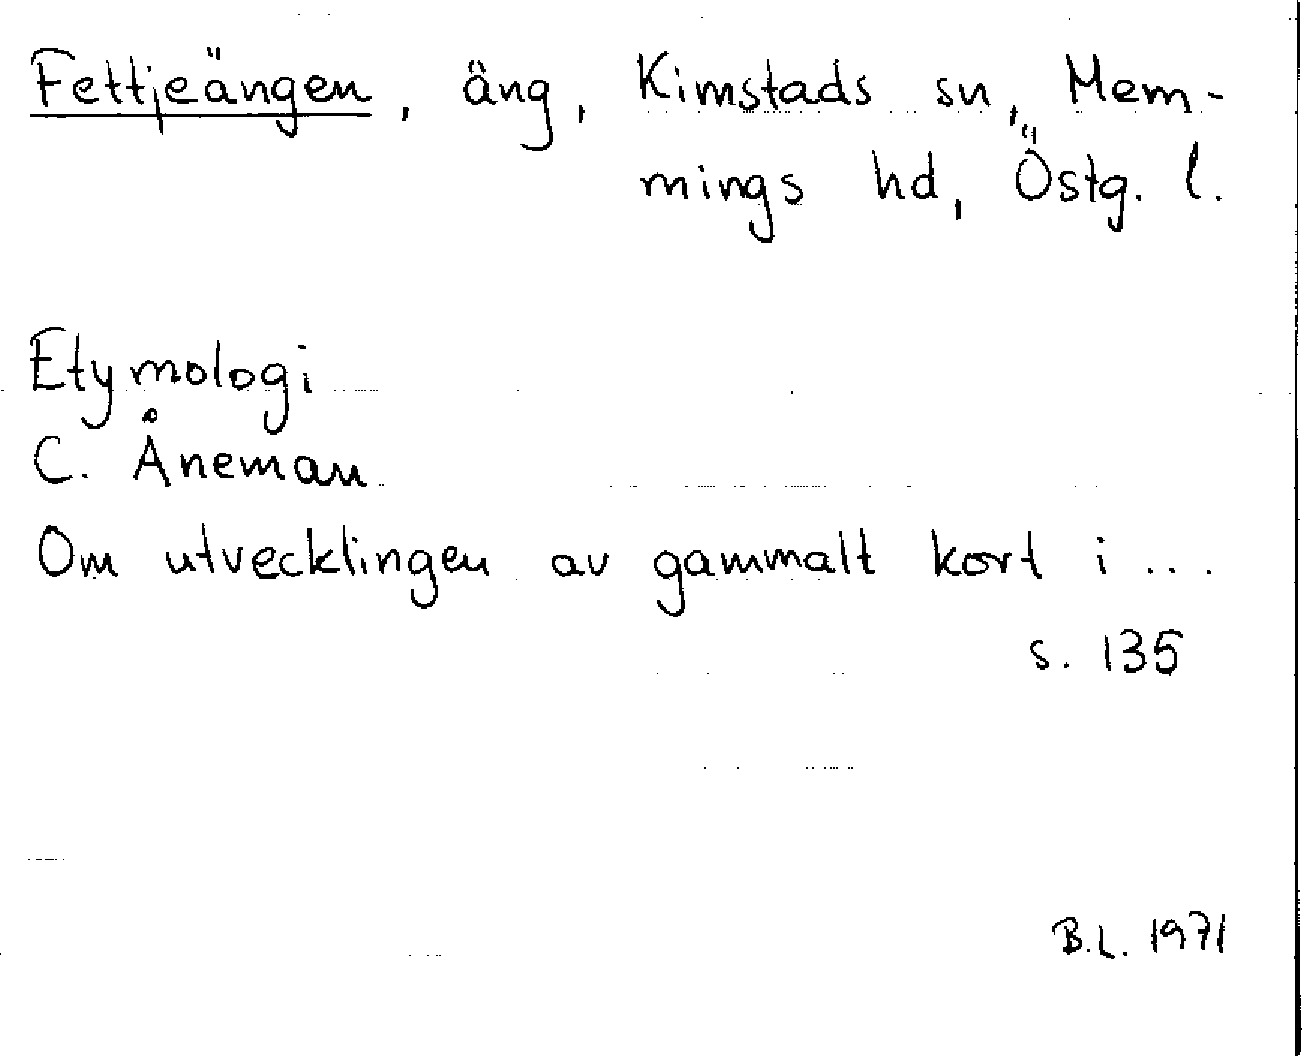 Fettjeängen, äng, Kimstads sn, Mem-
mings hd, Östg. l.
Etymologi
C. Åneman
Om utvecklingen av gammalt kort i ...
s. 135
B.L. 1971